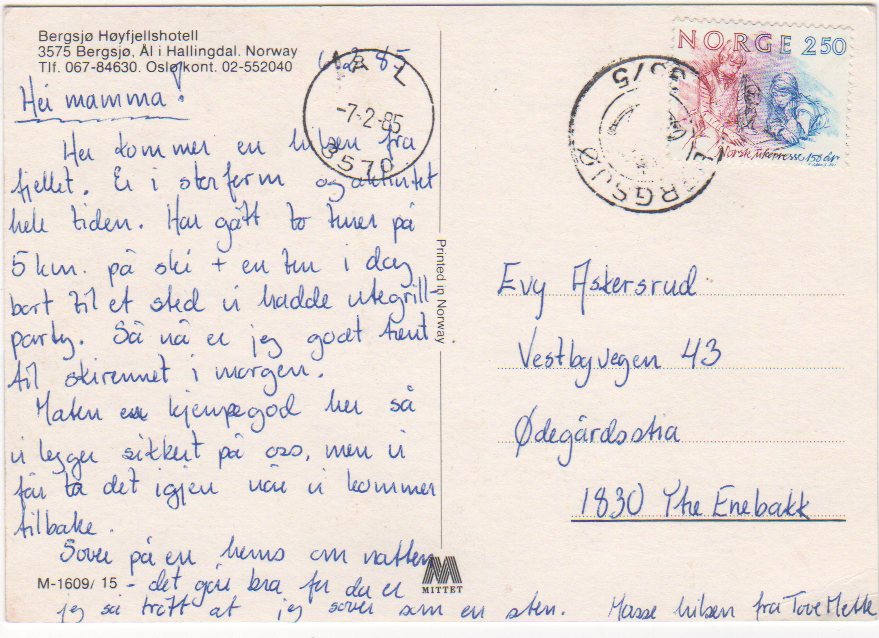 Bergsjø Høyfjellshotell
3575 Bergsjø, Ål i Hallingdal. Norway
Tlf. 067-84630. Oslo kont. 02-552040
6.2 85
Hei mamma!
Her kommer en hilsen fra
fjellet. Er i storform og aktivitet
hele tiden. Har gått to turer på
5 km. på ski + en tur i dag
bort til et sted vi hadde utegrill-
party. Så nå er jeg godt trent
til skirennet i morgen.
Maten er kjempegod her så
vi legger sikkert på oss, men vi
får ta det igjen når vi kommer
tilbake.
Sover på en hems om natten
- det går bra for da er
jeg så trøtt at jeg sover som en sten. Masse hilsen fra Tove Mette
M-1609/ 15
Printed in Norway
MITTET
ÅL
-7-2-85
3570
BERGSJØ
3575
NORGE 250
Norsk ukepresse 150 år
Evy Askersrud
Vestbyvegen 43
Ødegårdsstia
1830 Ytre Enebakk